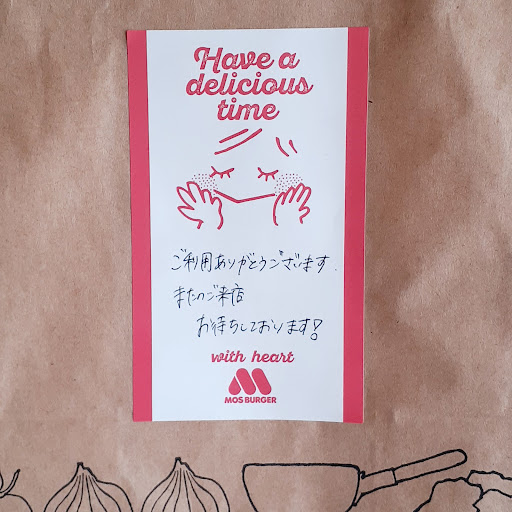 Have a
delicious
time
ご利用ありがとうございます
またのご来店
お待ちしております!
with heart
MOS BURGER